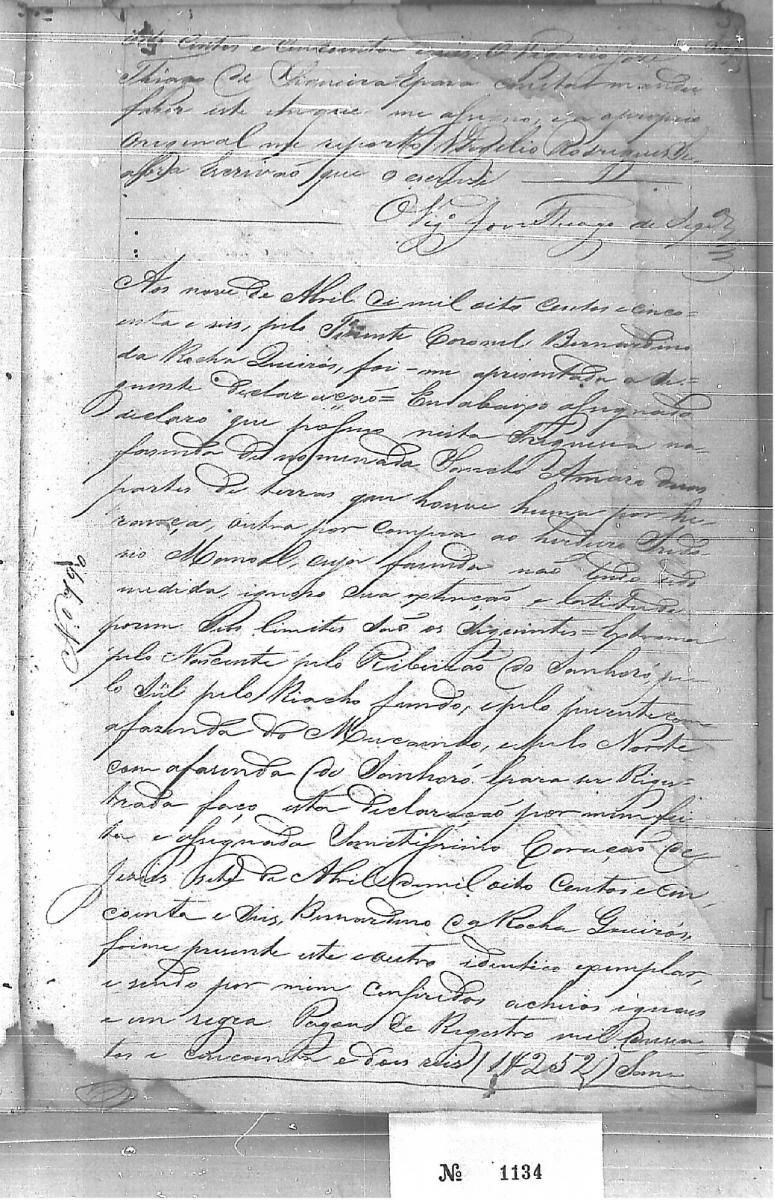 oito centos e cincoenta e seis, O Vigario José
Thiago de Siqueira. E para constar mandei
fazer este em que me assigno, e a proprio
Original me reporto, Rodrigues de
Escrivão que o escrevi
O Vigº. José Thiago de Siqrª
Aos nove de Abril de mil oito centos e cinco-
enta e seis, pelo Tenente Coronel Bernardino
da Rocha Queirós, foi-me apresentada a se-
guinte declaração = Eu abaixo assignado
declaro que possuo nesta Freguesia na
fazenda denomenada Sancto Amaro duas
partes de terras que houve huma por he-
rança, outra por compra ao herdeiro
Manoel, cuja fazenda não tendo sido
medida, ignoro sua extenção e latitude
porem seus limites são os seguintes = Extrema
pelo Nascente pelo Ribeirão do Sanharó, pe-
lo Sul pelo Riacho fundo, e pelo puente com
a fazenda do e pelo Norte
com a fazenda do Sanharó. E para ser Regis-
trada faço esta declaração por mim fei-
ta e assignada Santissimo Coração de
Jesus sete de Abril de mil oito centos e cin-
coenta e seis, Bernardino da Rocha Queirós,
foi me presente este e outro identico exemplar,
e sendo por mim conferidos achei os iguaes
e em regra. Pagou de Registro mil duzen-
tos e cincoenta e dois reis (1$252) San-
Nº 496
Nº 1134